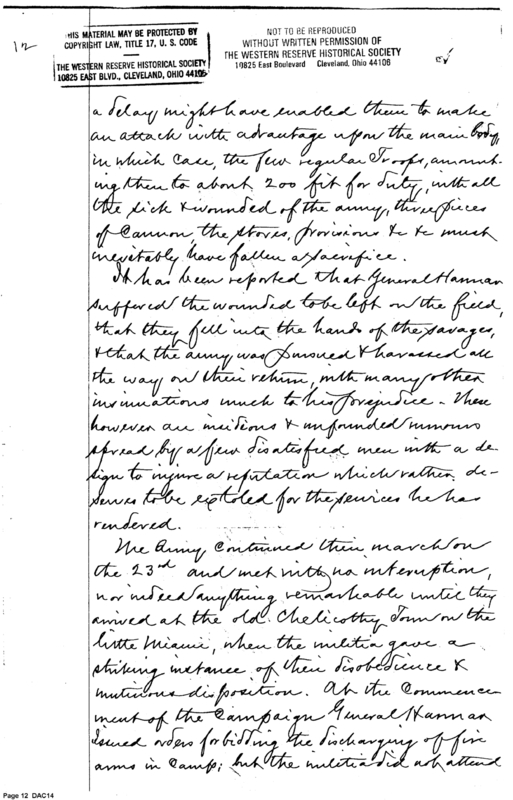 12
THIS MATERIAL MAY BE PROTECTED BY
COPYRIGHT LAW, TITLE 17, U. S. CODE
THE WESTERN RESERVE HISTORICAL SOCIETY
10825 EAST BLVD., CLEVELAND, OHIO 44106
NOT TO BE REPRODUCED
WITHOUT WRITTEN PERMISSION OF
THE WESTERN RESERVE HISTORICAL SOCIETY
10825 East Boulevard Cleveland, Ohio 44106
a delay might have enabled them to make
an attack with advantage upon the main body,
in which case, the few regular Troops, amount-
ing then to about 200 fit for duty, with all
the sick & wounded of the army, three pieces
of Cannon, the stores, provisions &c &c must
inevitably have fallen a sacrifice.
It has been reported that General Harmar
suffered the wounded to be left on the field,
that they fell into the hands of the savages,
& that the army was pursued & harassed all
the way on their return, with many other
insinuations much to his prejudice. These
however are invidious & unfounded rumours
spread by a few disatisfied men with a de-
sign to injure a reputation which rather de-
serves to be extoled for the services he has
rendered.
The Army continued their march on
the 23rd and met with no interuption,
nor indeed anything remarkable until they
arrived at the old Chelicothy Town on the
little Miami, when the militia gave a
striking instance of their disobedience &
mutinous disposition. At the Commence-
ment of the Campaign General Harmar
issued orders forbidding the discharging of fire
arms in Camp; but the militia did not attend
Page 12 DAC14